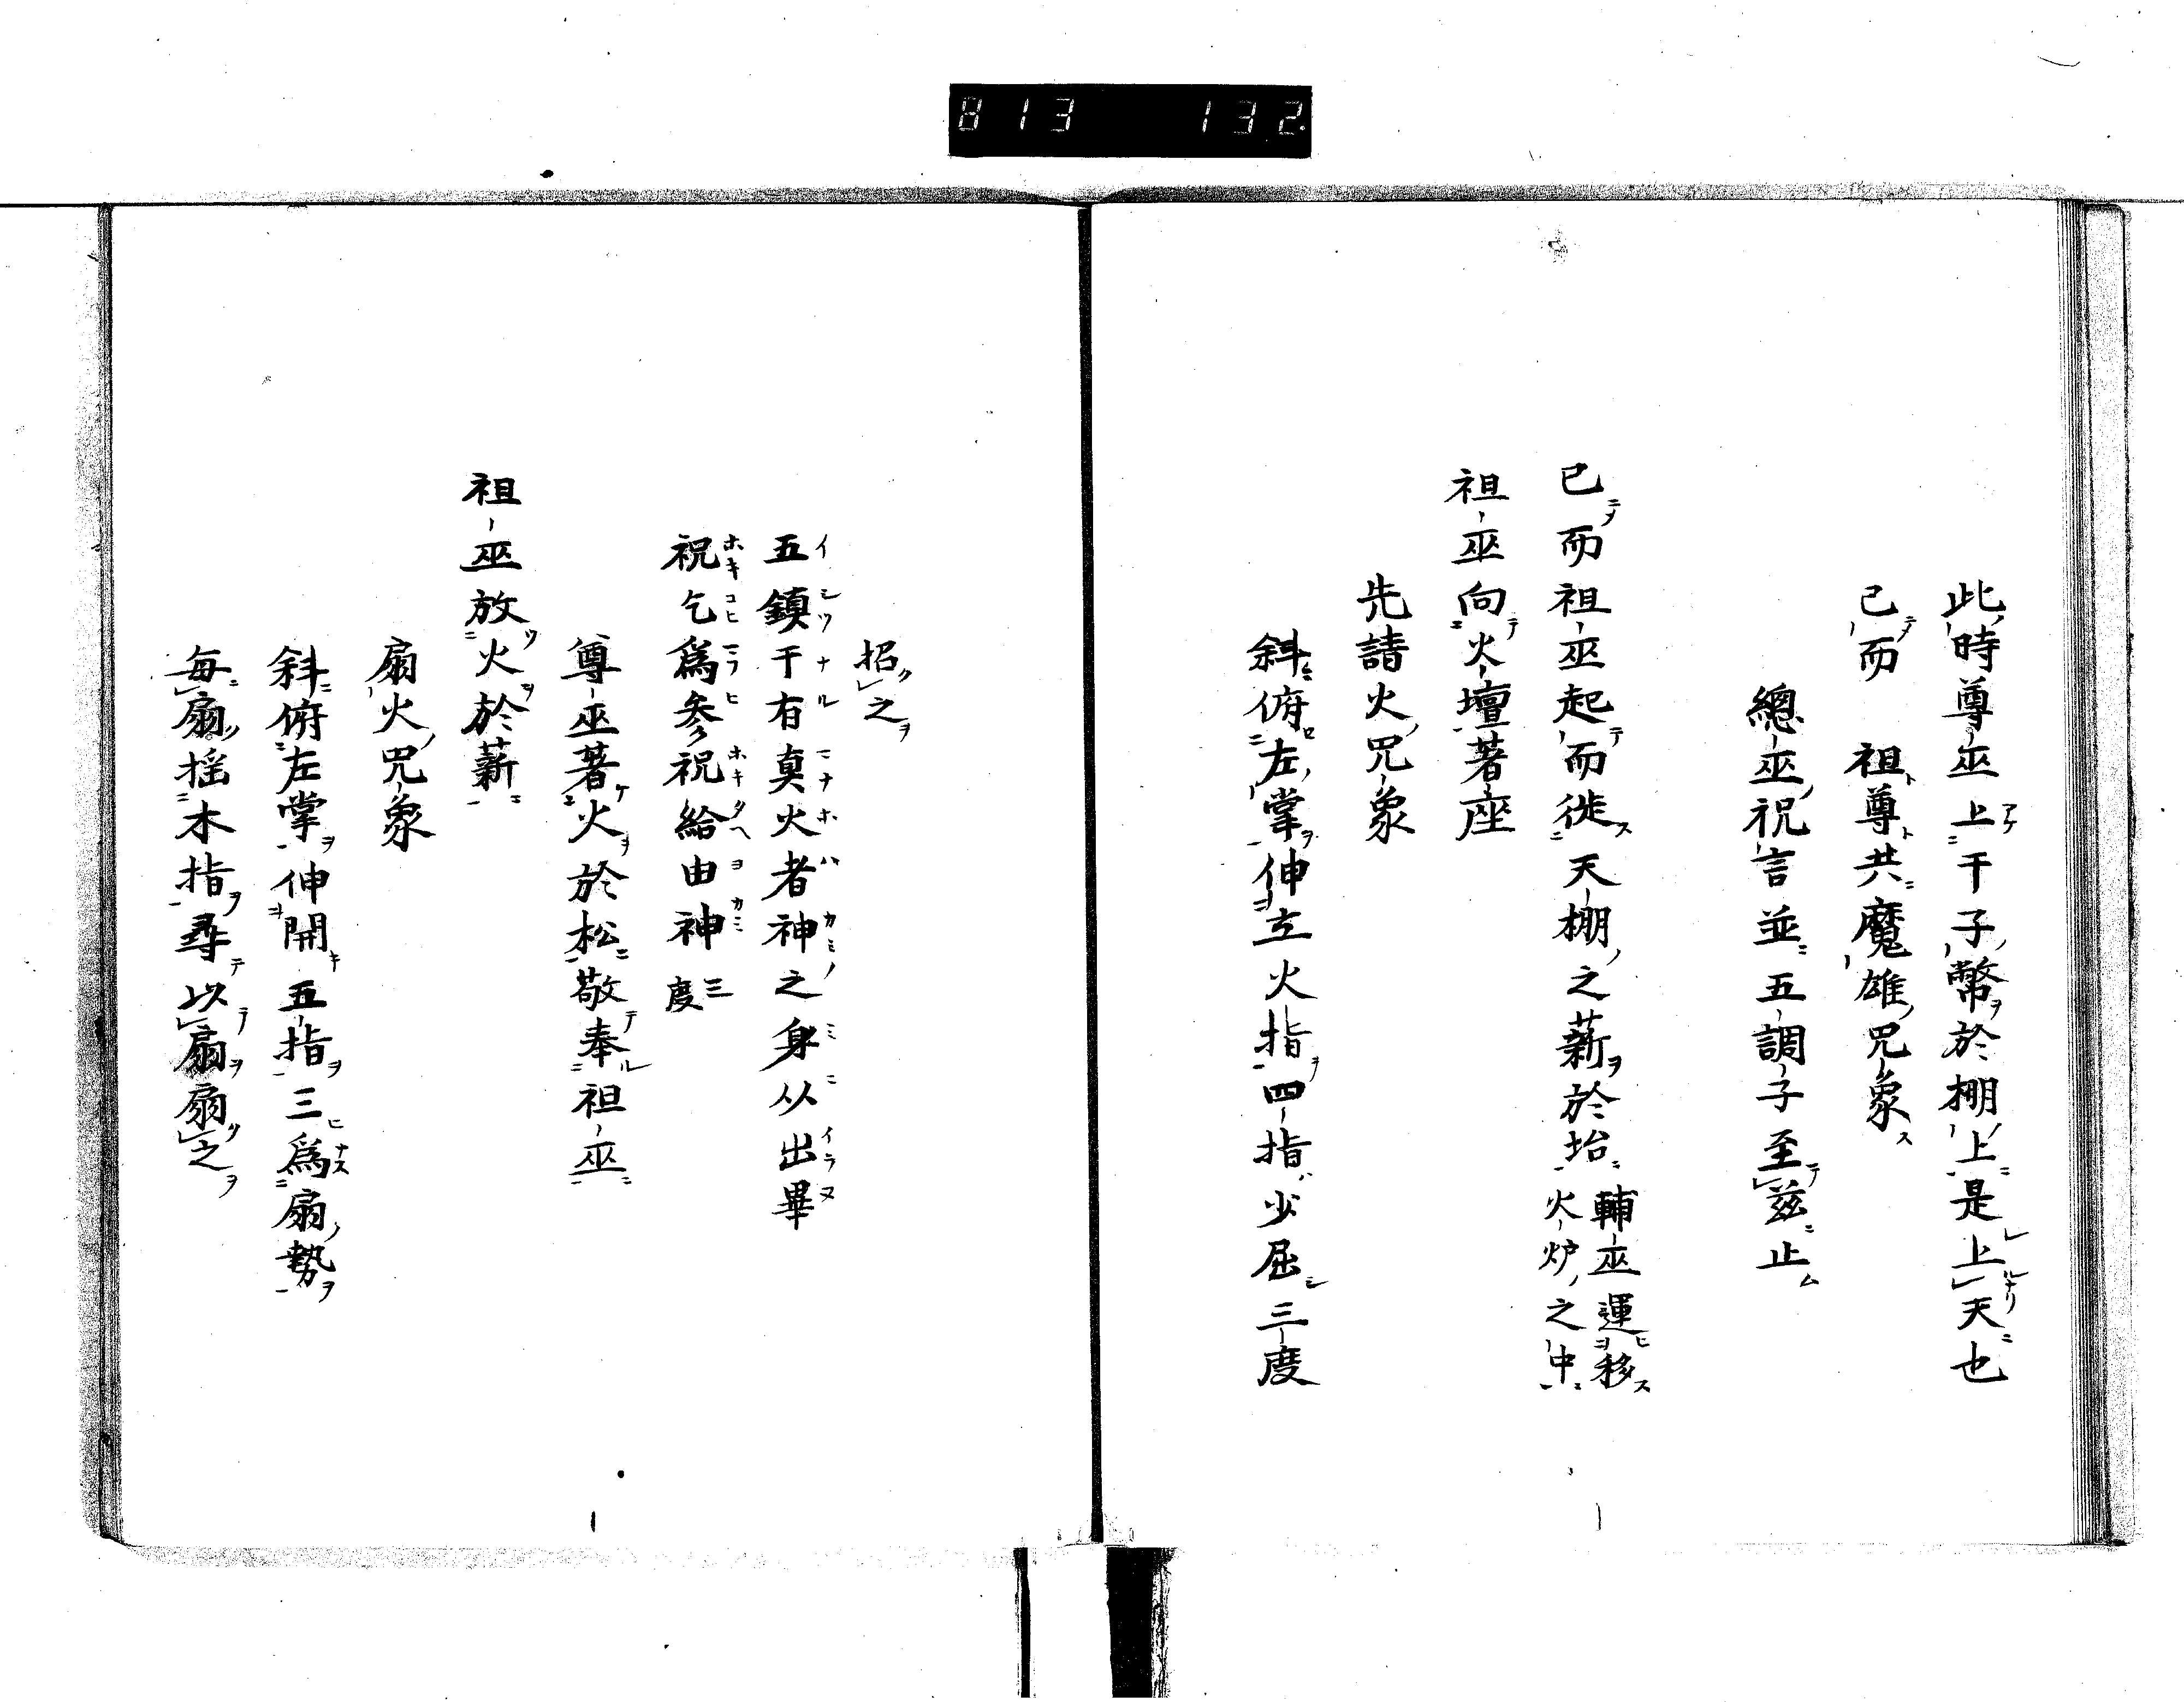 813 132
此時尊巫上干子幣於棚上是上天也
已而 祖尊共魔雄咒象
總巫祝言並五調子至茲止
已而祖巫起而徙天棚之薪於坮 輔巫運移火炉之中
祖巫向火壇著座
先請火咒象
斜俯左掌伸立火指四指少屈三度
招之
五鎮干有真火者神之身从出畢
祝乞爲参祝給由神 三度
尊巫著火於松敬奉祖巫
祖巫放火於薪
扇火咒象
斜俯左掌伸開五指三爲扇勢
每扇揺木指尋以扇扇之